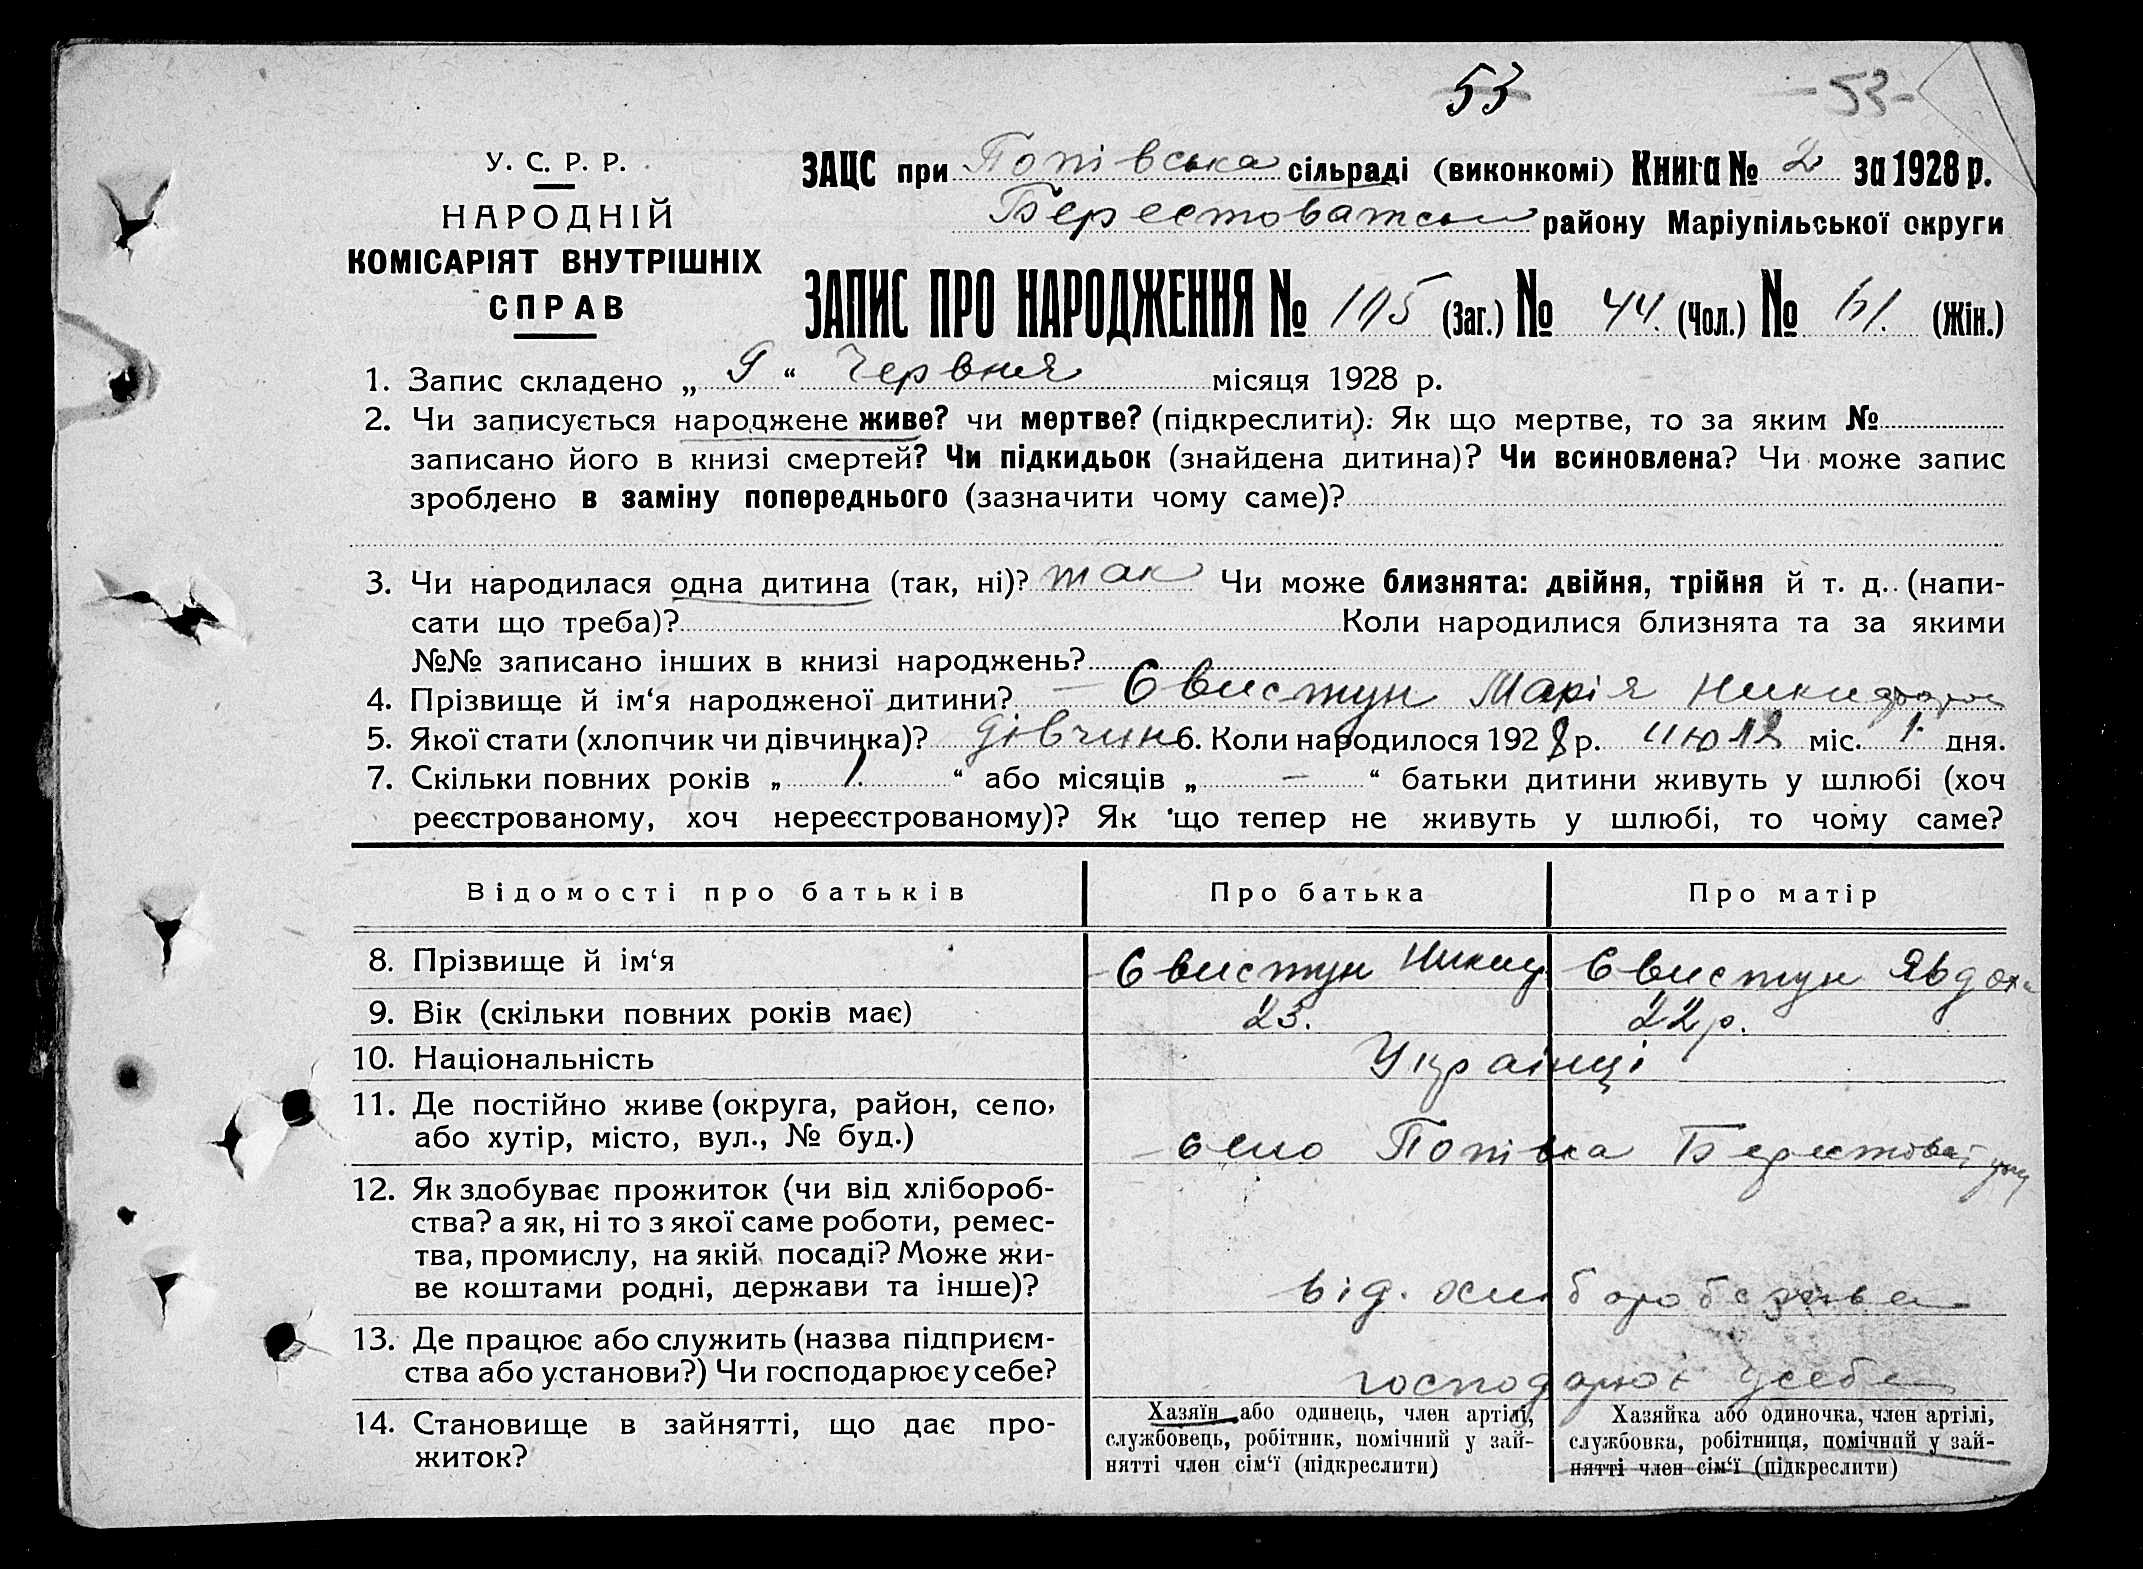 53
-53-
У. С. Р. Р.
НАРОДНІЙ
КОМІСАРІЯТ ВНУТРІШНІХ
СПРАВ
ЗАЦС при Попівська сільраді (виконкомі) Книга № 2 за 1928 р.
Берестоватськ району Маріупільської округи
ЗАПИС ПРО НАРОДЖЕННЯ № 105 (Заг.) № 44. (Чол.) № 61. (Жін.)
1. Запис складено „ “ Червня місяця 1928 р.
2. Чи записується народжене живе? чи мертве? (підкреслити). Як що мертве, то за яким №
записано його в книзі смертей? Чи підкидьок (знайдена дитина)? Чи всиновлена? Чи може запис
зроблено в заміну попереднього (зазначити чому саме)?
3. Чи народилася одна дитина (так, ні)? так Чи може близнята: двійня, трійня й т. д. (напи-
сати що треба)? Коли народилися близнята та за якими
№№ записано інших в книзі народжень?
4. Прізвище й ім‘я народженої дитини? Свистун Марія Никифоров
5. Якої стати (хлопчик чи дівчинка)? дівчин 6. Коли народилося 1928 р. июля міс. 1. дня.
7. Скільки повних років „ 1 “ або місяців „ — “ батьки дитини живуть у шлюбі (хоч
реєстрованому, хоч нереєстрованому)? Як що тепер не живуть у шлюбі, то чому саме?
Відомості про батьків Про батька Про матір
8. Прізвище й ім‘я Свистун Никиф Свистун Явдоха
9. Вік (скільки повних років має) 23. 22 р.
10. Національність Українці
11. Де постійно живе (округа, район, село,
або хутір, місто, вул., № буд.) село Попівка Берестоват
12. Як здобуває прожиток (чи від хлібороб-
ства? а як, ні то з якої саме роботи, ремес-
тва, промислу, на якій посаді? Може жи-
ве коштами родні, держави та інше)? від. хлиборобства
13. Де працює або служить (назва підприєм-
ства або установи?) Чи господарює у себе? господарює у себе
14. Становище в зайнятті, що дає про-
житок?
Хазяїн або одинець, член артілі,
службовець, робітник, помічний у зай-
нятті член сім‘ї (підкреслити)
Хазяйка або одиночка, член артілі,
службовка, робітниця, помічний у зай-
нятті член сім‘ї (підкреслити)